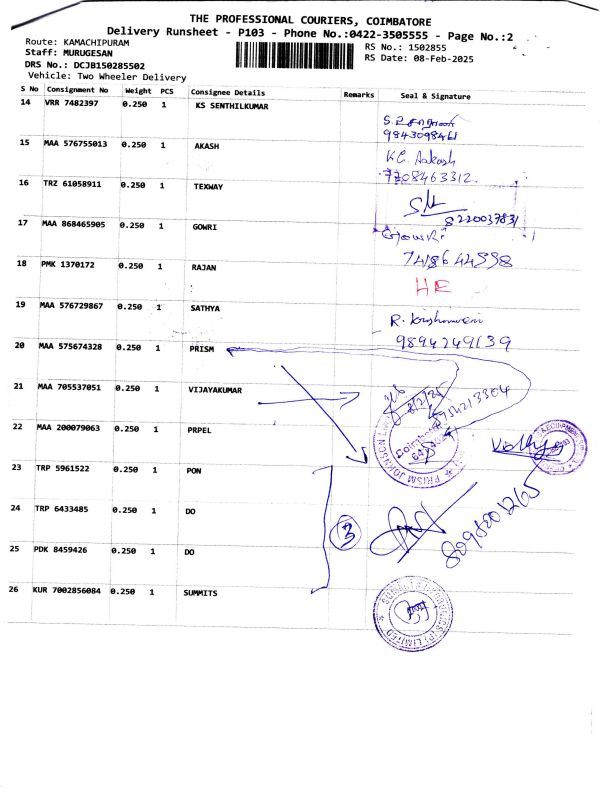 THE PROFESSIONAL COURIERS, COIMBATORE
Delivery Runsheet - P103 - Phone No.:0422-3505555 - Page No.:2
Route: KAMACHIPURAM
RS No.: 1502855
Staff: MURUGESAN
RS Date: 08-Feb-2025
DRS No.: DCJB150285502
Vehicle: Two Wheeler Delivery
S No Consignment No Weight PCS Consignee Details Remarks Seal & Signature
14 VRR 7482397 0.250 1 KS SENTHILKUMAR
9843098461
15 MAA 576755013 0.250 1 AKASH K.C. Aakash
7708463312.
16 TRZ 61058911 0.250 1 TEXWAY
8220037831
17 MAA 868465905 0.250 1 GOWRI Gowri
7418644998
18 PMK 1370172 0.250 1 RAJAN
HE
19 MAA 576729867 0.250 1 SATHYA
9894249139
20 MAA 575674328 0.250 1 PRISM
21 MAA 705537051 0.250 1 VIJAYAKUMAR
8/2/25
22 MAA 200079063 0.250 1 PRPEL
PRISM JOHNSON LIMITED
Coimbatore
23 TRP 5961522 0.250 1 PON
24 TRP 6433485 0.250 1 DO
3
25 PDK 8459426 0.250 1 DO
26 KUR 7002856084 0.250 1 SUMMITS